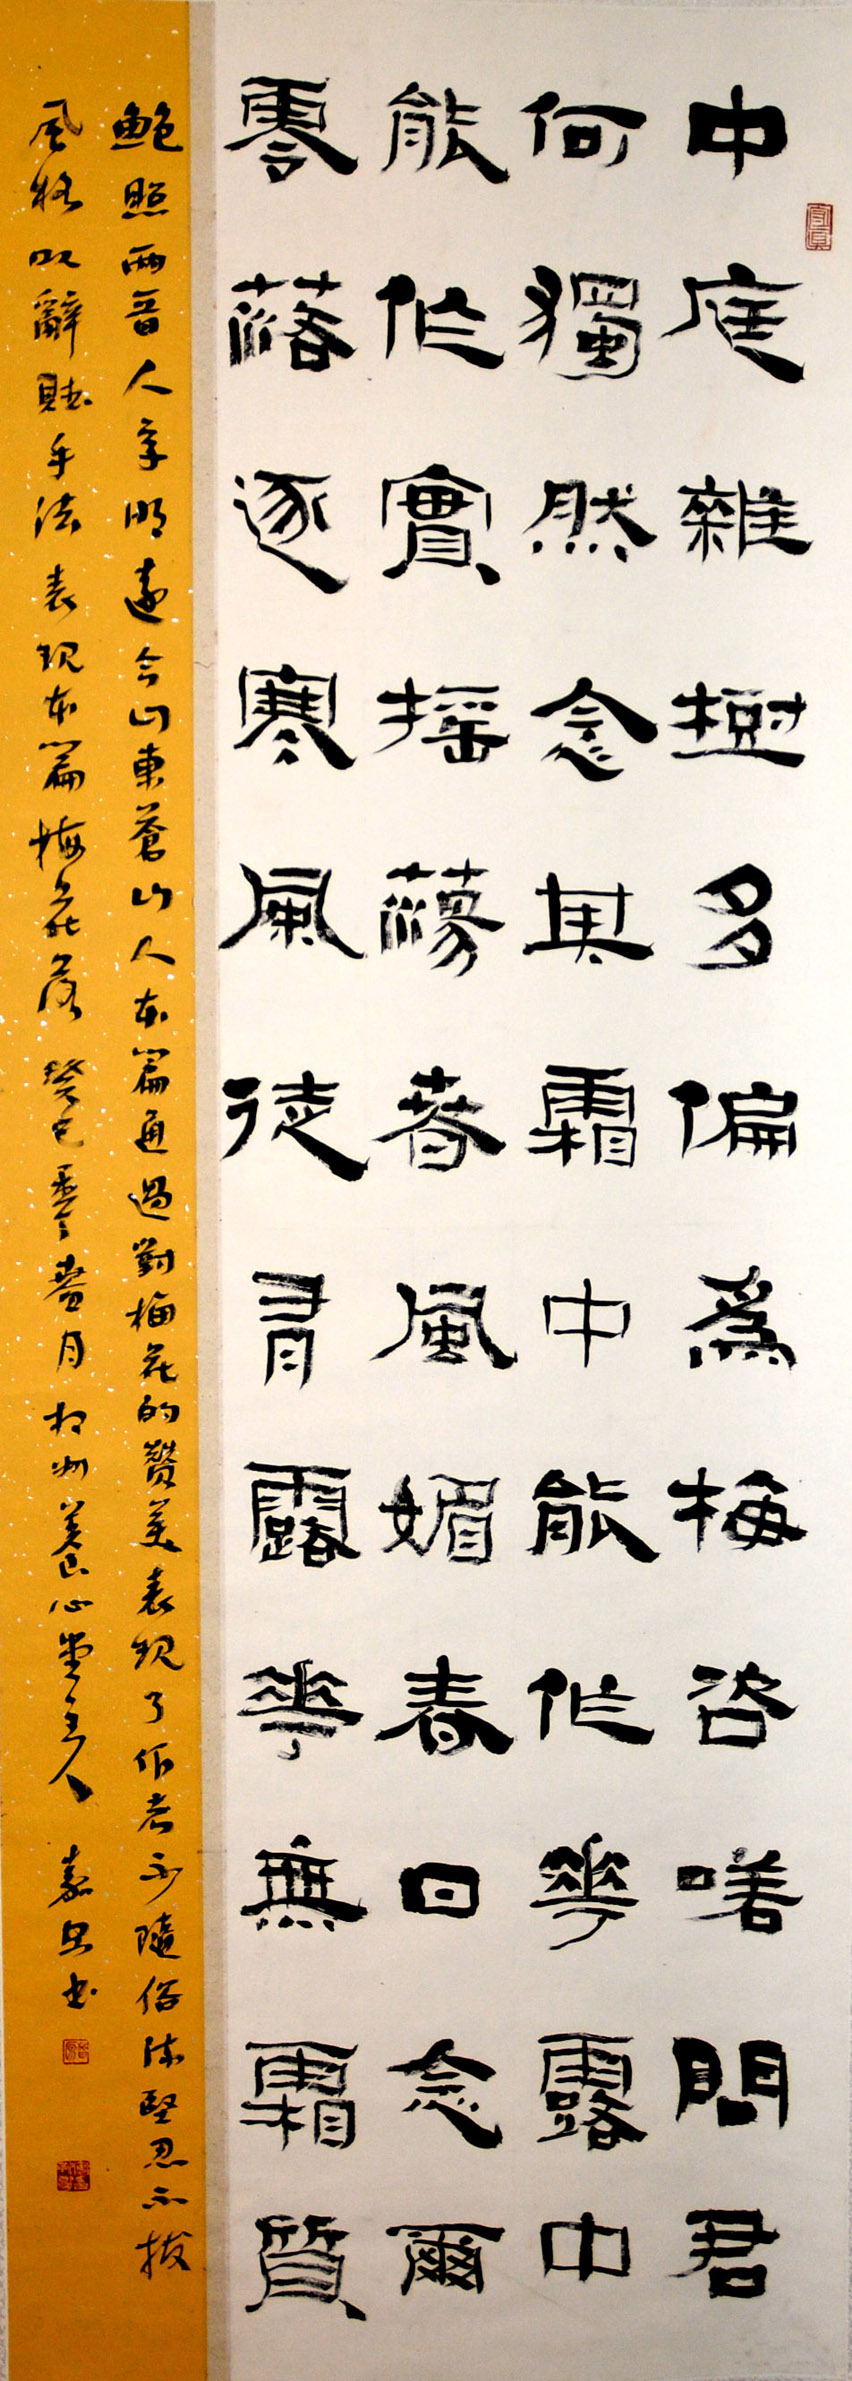 中庭雜樹多偏爲梅咨嗟問君
何獨然念其霜中能作華露中
能作實摇蕩春風媚春日念爾
零落逐寒風徒有露華無霜質
鮑照兩晉人字明遠今山東蒼山人本篇通過對梅花的贊美表現了作者不隨俗流堅忍不拔
風格以辭賦手法表現本篇梅花落 癸巳 月 州養心堂主人 嘉 书